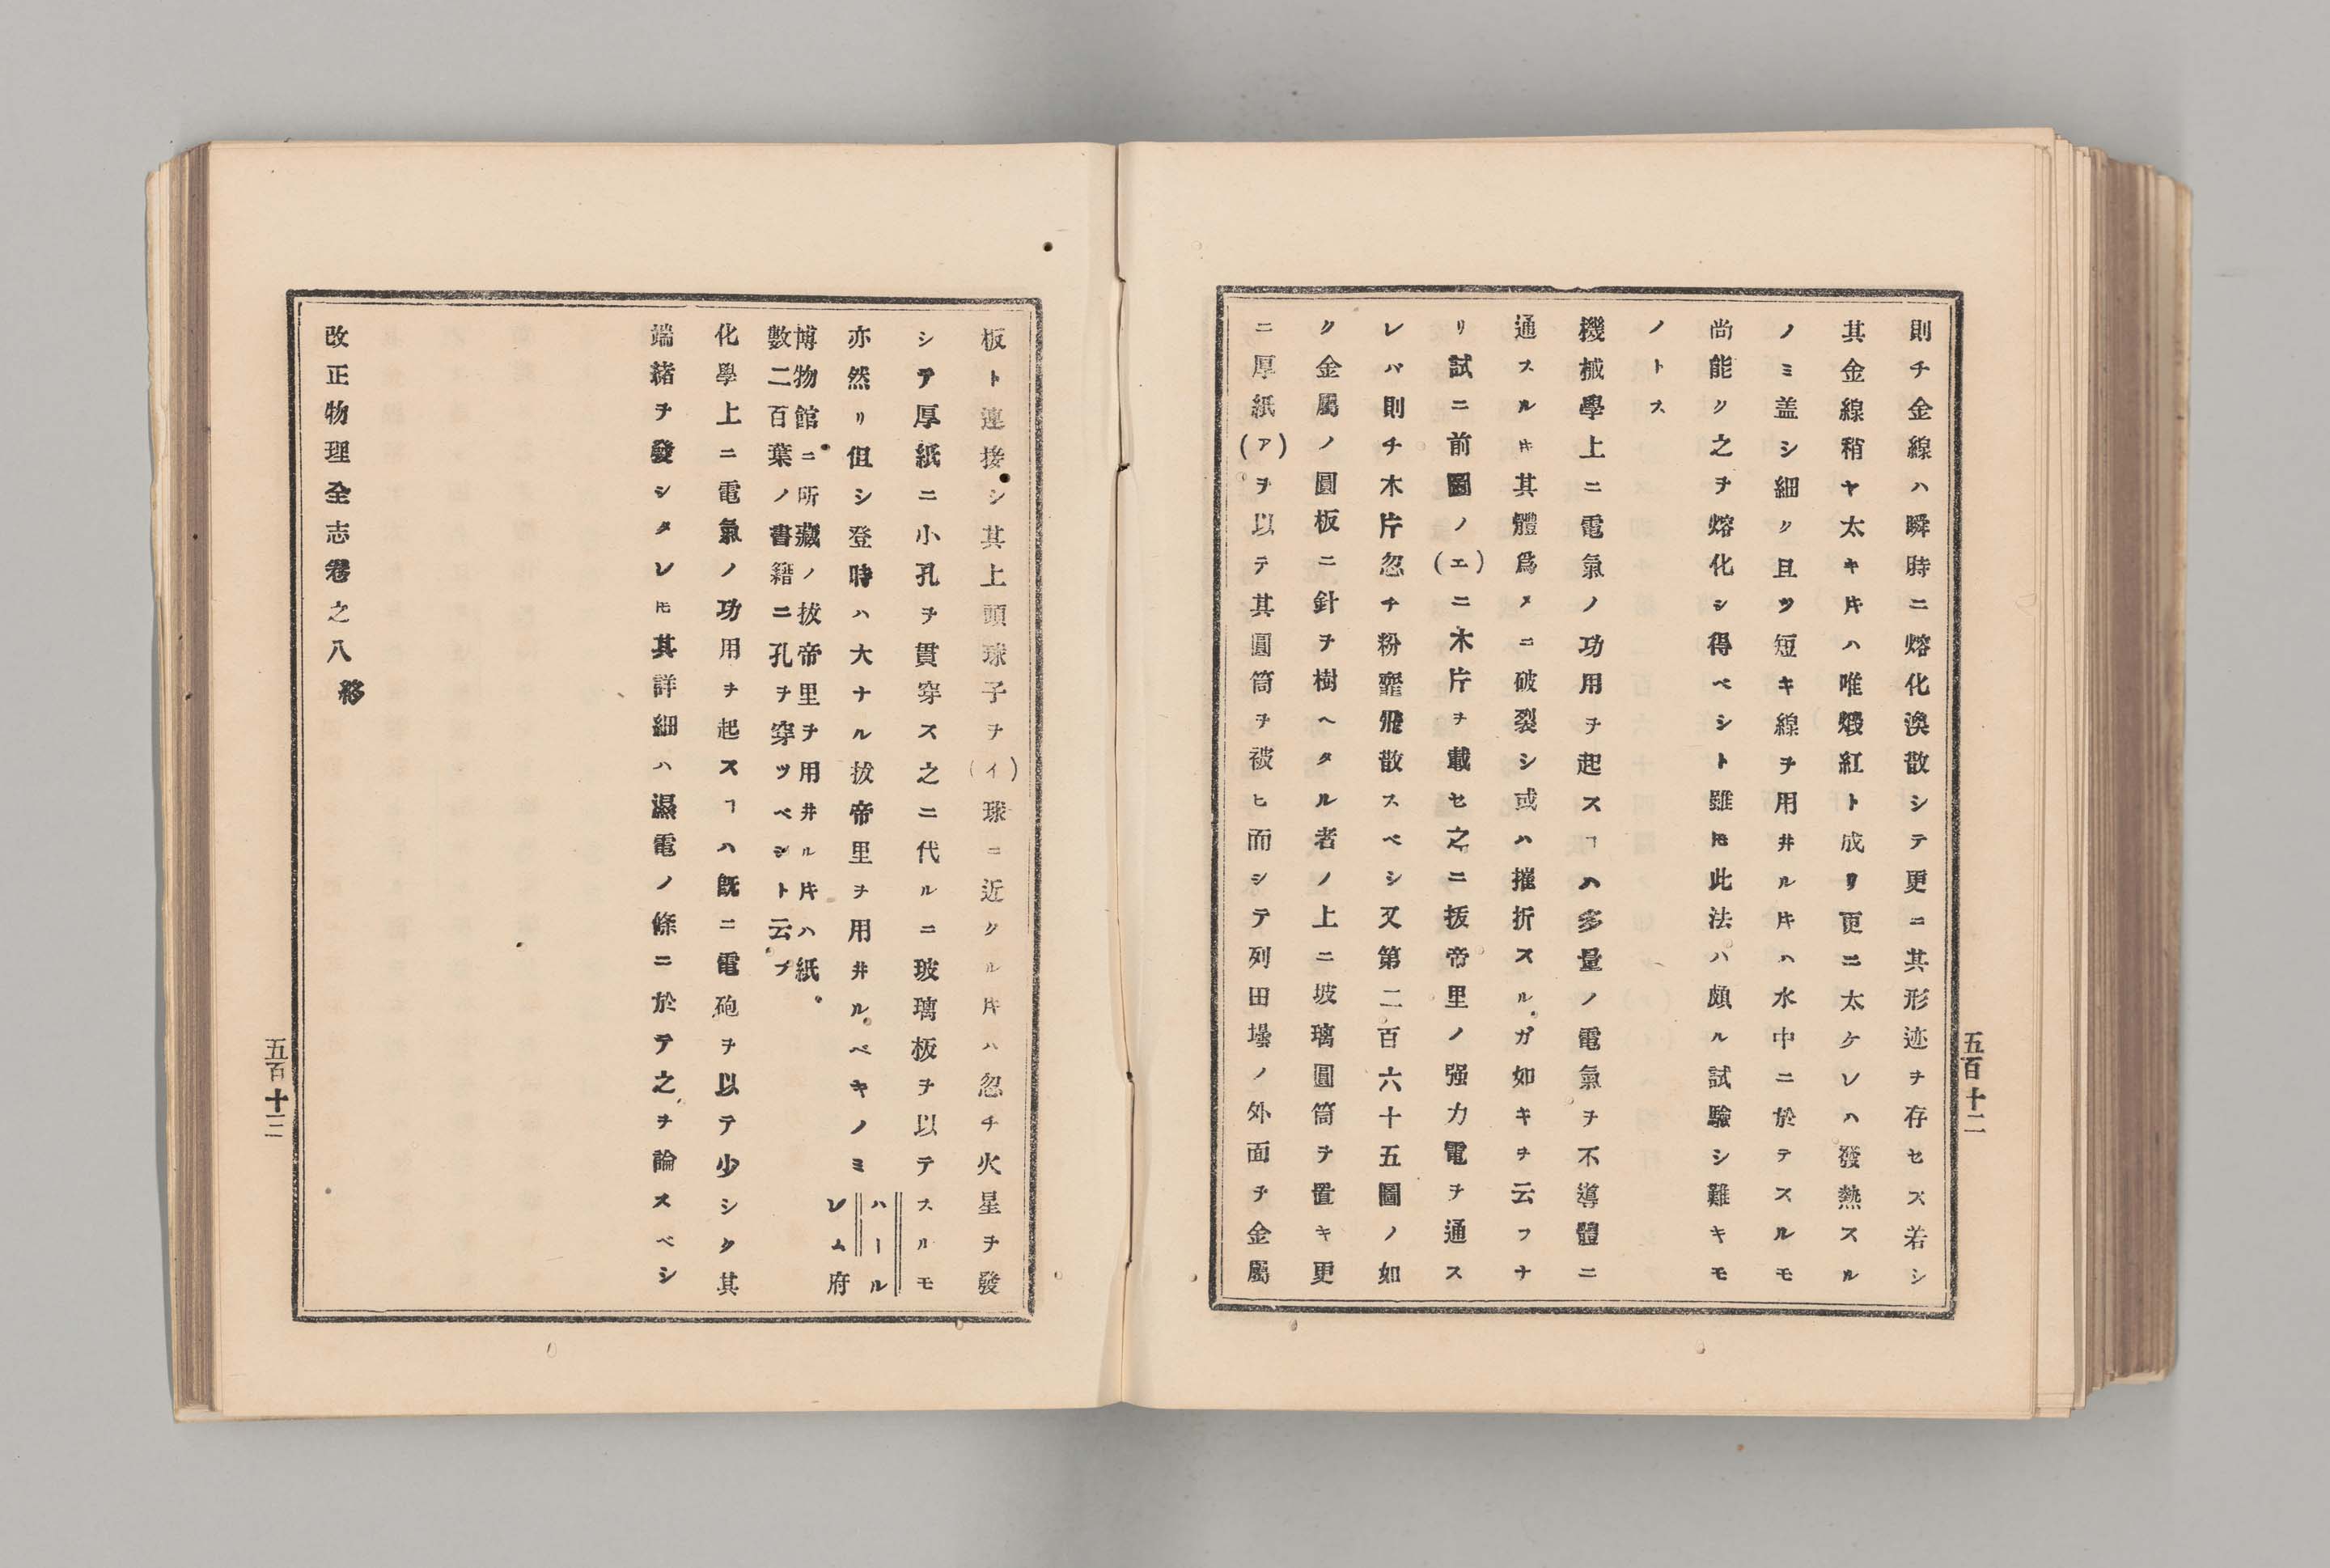 五百十二
則チ金線ハ瞬時ニ熔化渙散シテ更ニ其形迹ヲ存セズ若シ
其金線稍ヤ太キ𪜈ハ唯煅紅ト成リ更ニ太ケレハ發熱スル
ノミ盖シ細ク且ツ短キ線ヲ用井ル𪜈ハ水中ニ於テスルモ
尚能ク之ヲ熔化シ得ベシト雖𪜈此法ハ頗ル試驗シ難キモ
ノトス
機械學上ニ電氣ノ功用ヲ起スヿハ多量ノ電氣ヲ不導體ニ
通スル𪜈其體爲メニ破裂シ或ハ摧折スルガ如キヲ云フナ
リ試ニ前圖ノ(エ)ニ木片ヲ載セ之ニ拔帝里ノ强力電ヲ通ス
レバ則チ木片忽チ粉韲飛散スベシ又第二百六十五圖ノ如
ク金屬ノ圓板ニ針ヲ樹ヘタル者ノ上ニ玻璃圓筒ヲ置キ更
ニ厚紙(ア)ヲ以テ其圓筒ヲ被ヒ而シテ列田壜ノ外面ヲ金屬
板ト連接シ其上頭球子ヲ(イ)球ニ近クル𪜈ハ忽チ火星ヲ發
シテ厚紙ニ小孔ヲ貫穿ス之ニ代ルニ玻璃板ヲ以テスルモ
亦然リ但シ登時ハ大ナル拔帝里ヲ用井ルベキノミ
ハールレム府
博物館ニ所藏ノ拔帝里ヲ用井ル𪜈ハ紙
數二百葉ノ書籍ニ孔ヲ穿ツベシト云フ
化學上ニ電氣ノ功用ヲ起スヿハ既ニ電砲ヲ以テ少シク其
端緒ヲ發シタレ𪜈其詳細ハ濕電ノ條ニ於テ之ヲ論スベシ
改正物理全志卷之八終
五百十三